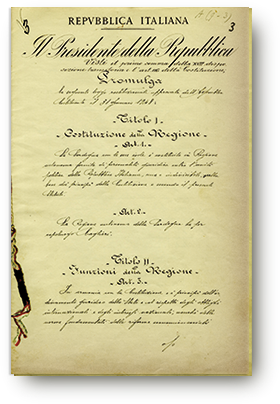 REPVBBLICA ITALIANA
3
Il Presidente della Repubblica
Visto il primo comma della XVII dispo-
sizione transitoria della Costituzione,
Promulga
la seguente legge costituzionale, approvata dall'Assemblea
Costituente il 31 gennaio 1948:
Titolo I
Costituzione della Regione
Art. 1.
La Sardegna con le sue isole è costituita in Regione
autonoma fornita di personalità giuridica entro l'unità
politica della Repubblica Italiana, una e indivisibile, sulla
base dei principi della Costituzione e secondo il presente
Statuto.
Art. 2.
La Regione autonoma della Sardegna ha per
capoluogo Cagliari.
Titolo II
Funzioni della Regione
Art. 3.
In armonia con la Costituzione e i principi dell'or-
dinamento giuridico dello Stato e col rispetto degli obblighi
internazionali e degli interessi nazionali, nonchè delle
norme fondamentali delle riforme economico-sociali